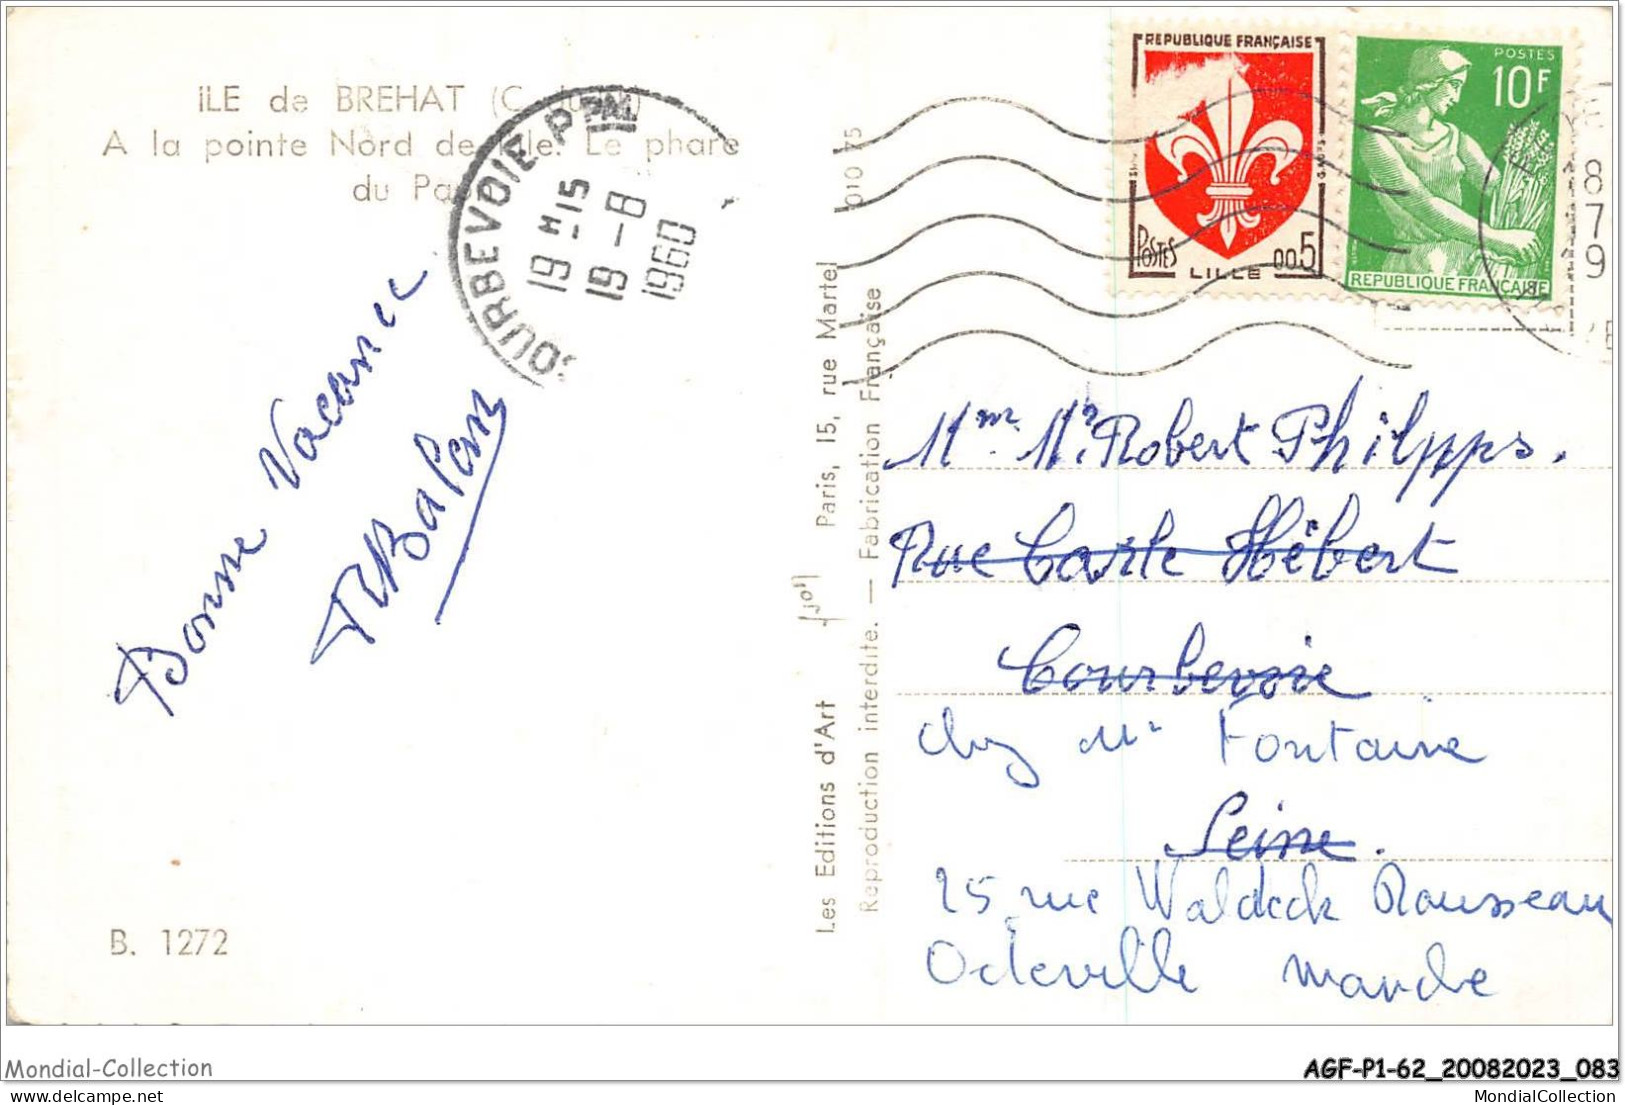 ILE de BREHAT (C. du N.)
A la pointe Nord de l'Ile. Le phare
du Paon
COURBEVOIE PPAL
19 H 15
19 - 8
1960
REPUBLIQUE FRANÇAISE
POSTES
LILLE
00.5
POSTES
10F
REPUBLIQUE FRANÇAISE
Bonne Vacance
Mm. Mr. Robert Philpps.
Rue Carle Hébert
Courbevoie
chez Mr Fontaine
Seine.
25 rue Waldeck Rousseau
Octeville manche
Les Editions d'Art "jos" Paris, 15, rue Martel 010 75
Reproduction interdite. — Fabrication Française
B. 1272
Mondial-Collection
AGF-P1-62_20082023_083
delcampe.net
MondialCollection